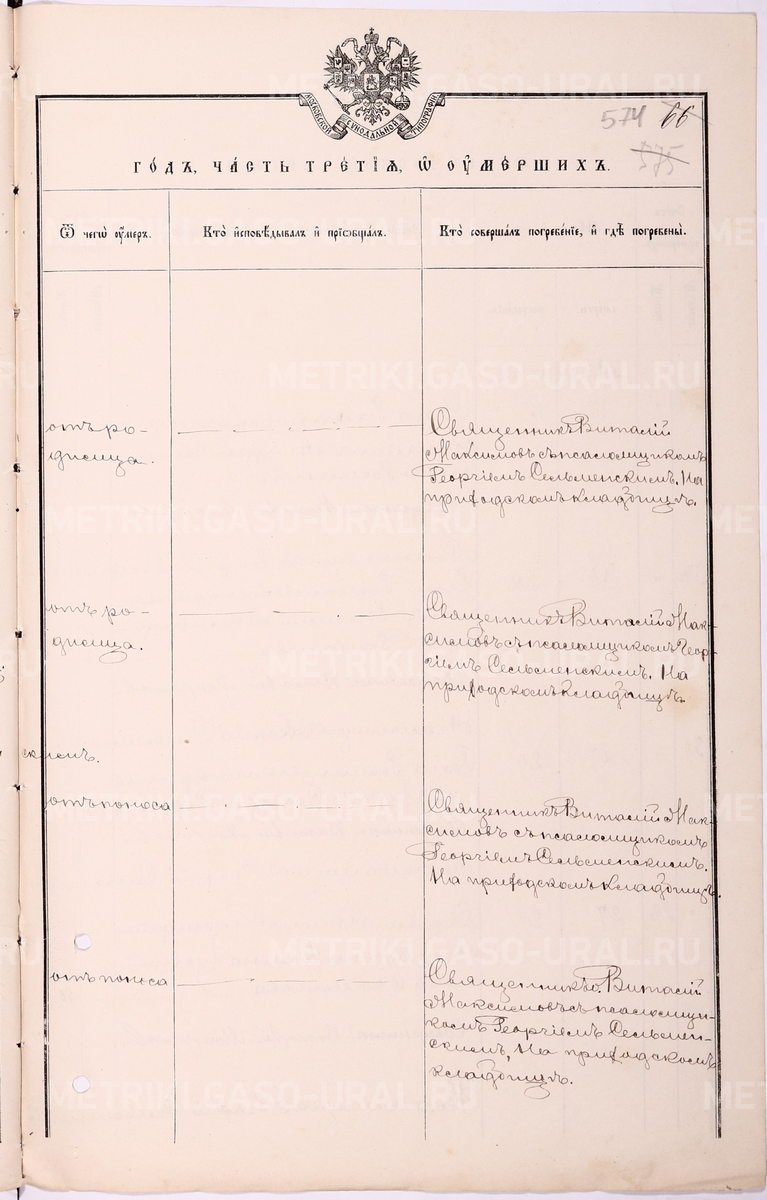 МОСКОВСКОЙ СѴНОДАЛЬНОЙ ТИПОГРАФІИ
574 66
575
ГО́ДЪ, ЧА́СТЬ ТРЕ́ТІѦ, Ѡ ОУ҆МЕ́РШИХЪ.
Ѿ чегѡ̀ оу҆́меръ.
Кто̀ и҆сповѣ́дывалъ и҆ прїѡбща́лъ.
Кто̀ соверша́лъ погребе́нїе, и҆ гдѣ̀ погребены̀.
отъ ро-
димца.
Священникъ Виталій
Максимовъ съ псаломщикомъ
Георгіемъ Сельменскимъ. На
приходскомъ кладбищѣ.
отъ ро-
димца.
Священникъ Виталій Мак-
симовъ съ псаломщикомъ Геор-
гіемъ Сельменскимъ. На
приходскомъ кладбищѣ.
скимъ.
отъ поноса
Священникъ Виталій Мак-
симовъ съ псаломщикомъ
Георгіемъ Сельменскимъ.
На приходскомъ кладбищѣ.
отъ поноса
Священникъ Виталій
Максимовъ съ псаломщи-
комъ Георгіемъ Сельмен-
скимъ, На приходскомъ
кладбищѣ.
METRIKI.GASO-URAL.RU